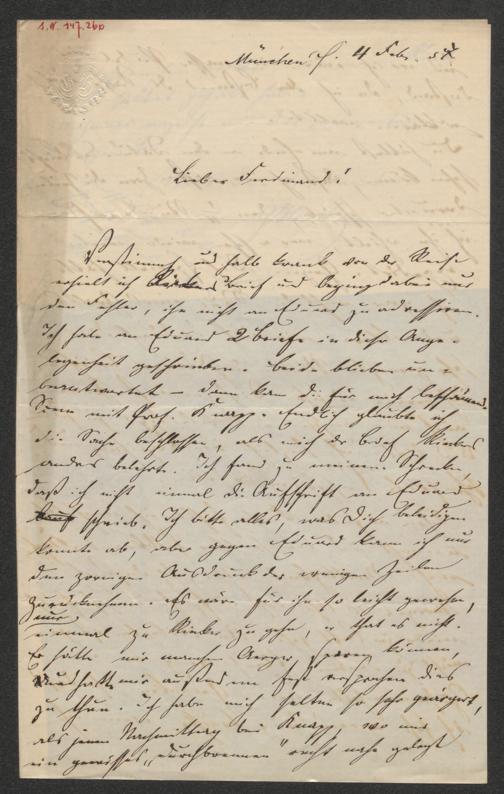 I.N. 147.260
München d. 4 Febr. 57
Lieber Ferdinand!
Verstimmt und halb krank von der Reise
erhielt ich Rickers Brief und beging dabei nur
den Fehler, ihn nicht an Eduard zu adressiren.
Ich habe an Eduard 2 Briefe in dieser Ange-
legenheit geschrieben. beide blieben un-
beantwortet – dann kam die für mich beschämende
Scene mit Prof. Knapp. Endlich glaubte ich
die Sache beschlossen, als mich der Brief Rickers
anders belehrte. Ich fand zu meinem Schrecken,
daß ich nicht einmal die Aufschrift an Eduard
schrieb. Ich bitte alles, was Dich beleidigen
konnte ab, aber gegen Eduard kann ich nur
den zornigen Ausdruck der wenigen Zeilen
zurücknehmen. Es wäre für ihn so leicht gewesen,
nur
einmal zu Ricker zu gehn, er that es nicht.
Er hätte mir manchen Aerger sparen können,
und hatte mir außerdem fest versprochen dies
zu thun. Ich habe mich selten so sehr geärgert,
als jenen Nachmittag bei Knapp, wo mir
ein gewisses „durchbrennen" recht nahe gelegt